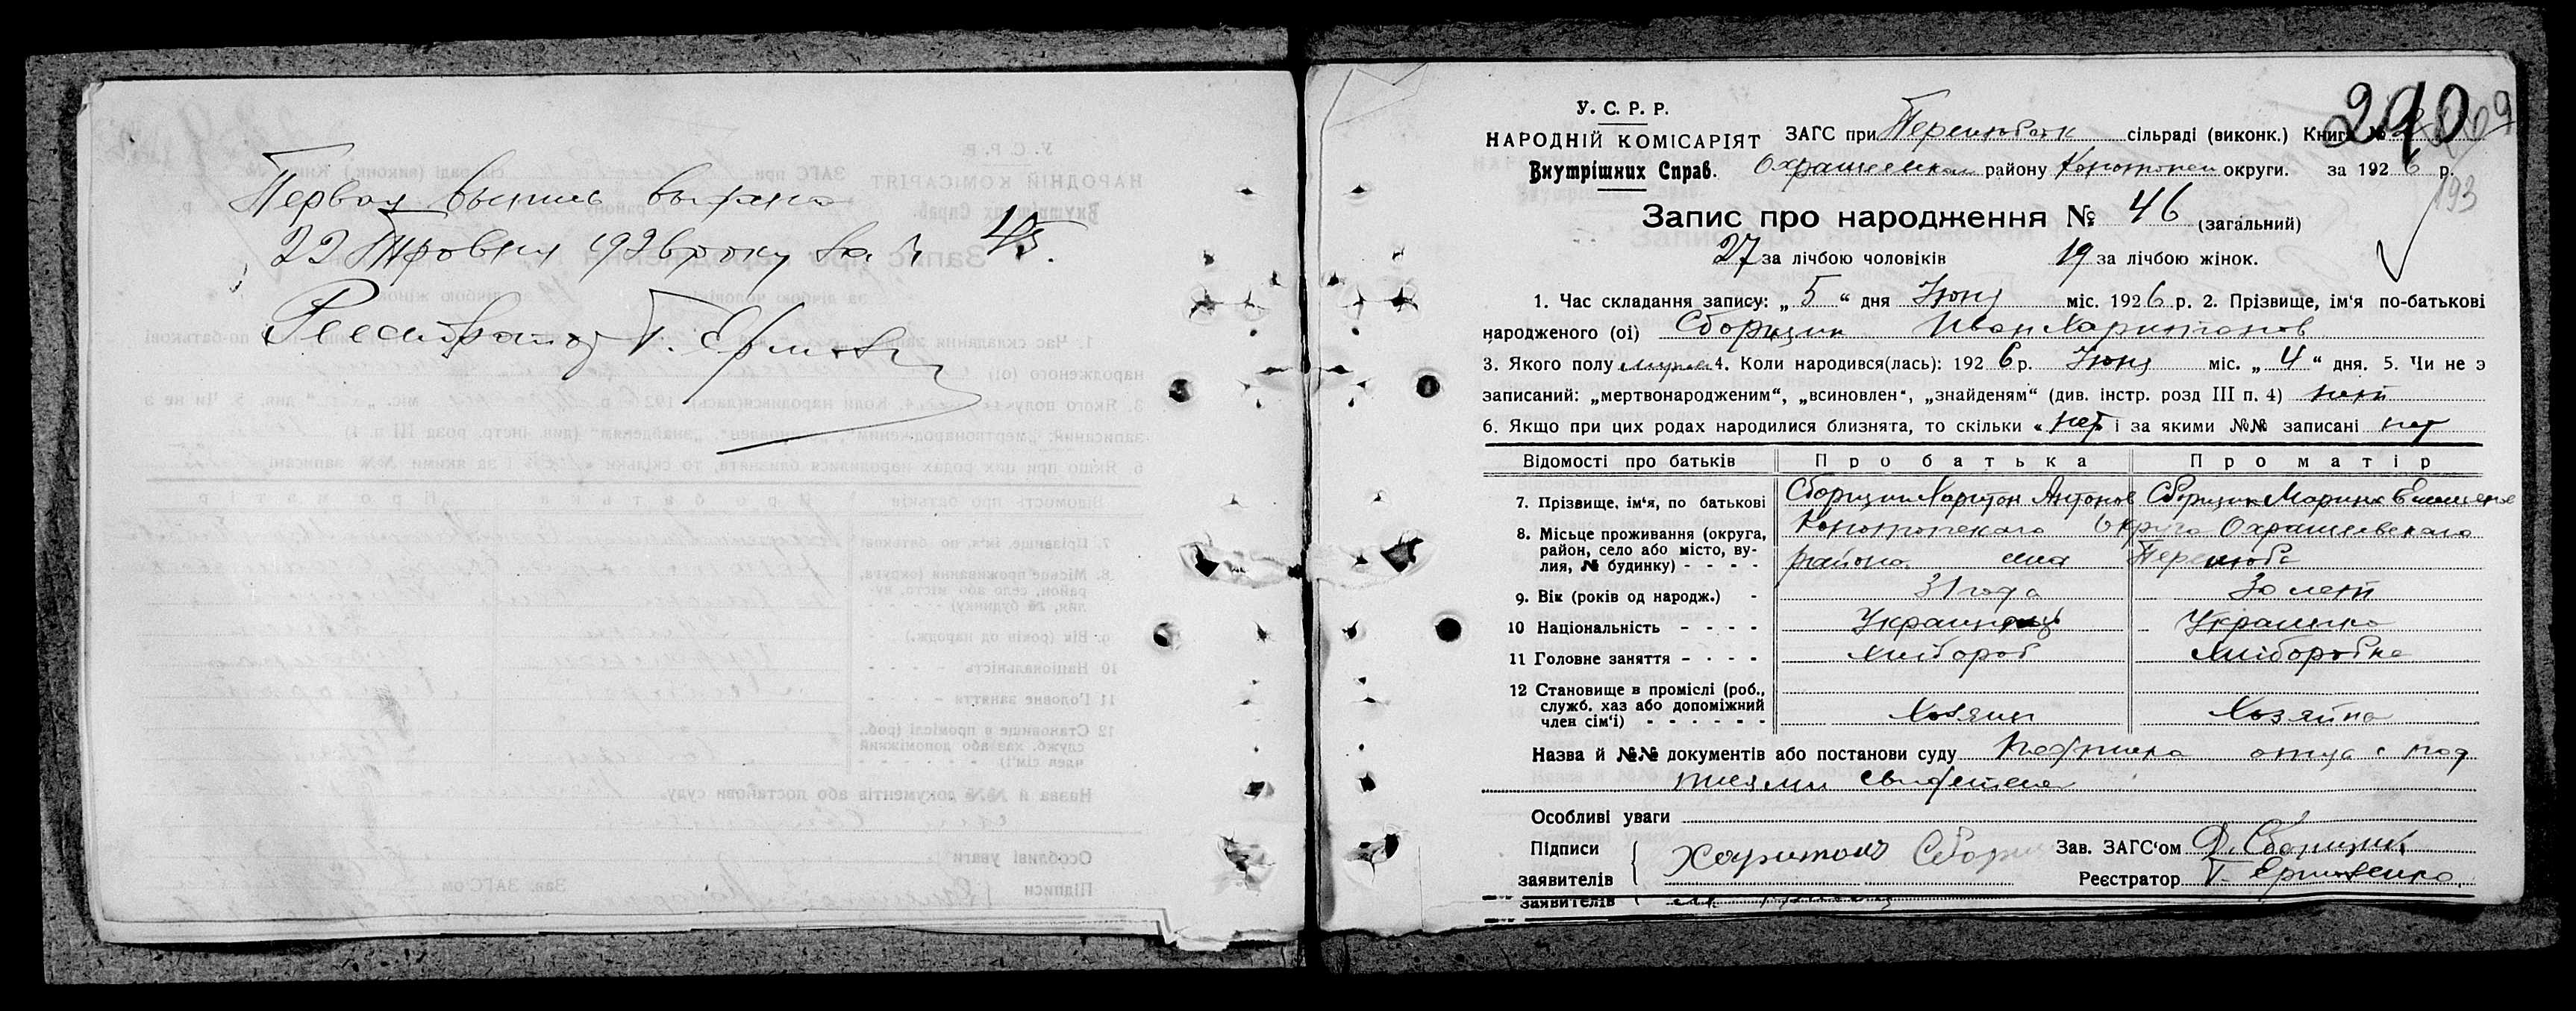 Первая выпись выдана
22 Травня 1926 року за № 45.
Реєстратор Г. Єрмо
290
У. С. Р. Р.
НАРОДНІЙ КОМІСАРІЯТ
Внутрішних Справ.
ЗАГС при Перелюбск сільраді (виконк.) Книга №
Охрамиевском районy Конотопск округи. за 1926 р.
193
Запис про народження № 46 (загальний)
27 за лічбою чоловіків 19 за лічбою жінок.
1. Час складання запису: „ 5 “ дня Июня міс. 1926 р. 2. Прізвище, ім'я по-батькові
народженого (ої) Сборщик Иван Харитонов
3. Якого полу мужск 4. Коли народився(лась): 1926 р. Июня міс. „ 4 “ дня. 5. Чи не э
записаний: „мертвонародженим“, „всиновлен“, „знайденям“ (див. інстр. розд III п. 4) нет
6. Якщо при цих родах народилися близнята, то скільки « нет » і за якими №№ записані нет
Відомості про батьків Про батька Про матір
7. Прізвище, ім'я, по батькові Сборщик Харитон Антонов Сборщик Марина
8. Місьце проживання (округа, район, село або місто, вулия, № будинку) - - - - Конотопского Округа Охрамиевского
района села Перелюба
9. Вік (років од народж.) - 31 года 30 лет
10 Національність - - - - Украинець Украинка
11 Головне заняття - - - - Хлібороб Хліборобка
12 Становище в промислі (роб.,
служб. хаз або допоміжний
член сім'ї) - - - - - - Хозяин Хозяйка
Назва й №№ документів або постанови суду отца с под
писями свидетеля
Особливі уваги
Підписи
заявителів Харитон Сборщ
Зав. ЗАГС'ом Д. Сборщик
Реєстратор Г. Ермоленко.
заявителів